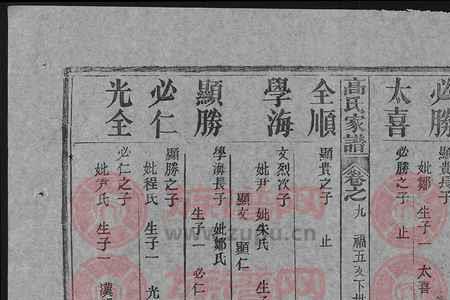 必勝
顯貴長子
妣鄒 生子一 太喜
太喜
必勝之子 止
高氏家譜 卷之九 福五
全順
顯貴之子 止
學海
文烈次子
妣尹 妣朱氏 生子
顯文 顯仁
顯勝
學海長子 妣鄭氏
生子一 必仁
必仁
顯勝之子
妣程氏 生子一 光
光全
必仁之子
妣尹氏 生子一 漢
www.zupu.cn